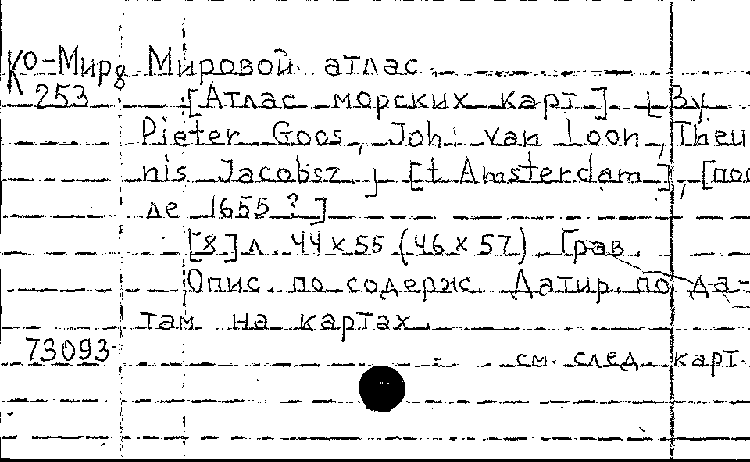 Ко-Мир8 Мировой атлас.
253 [Атлас морских карт.] [By
Pieter Goos, Joh. van Loon, Theu
nis Jacobsz.] [t Amsterdam], [пос
ле 1655?]
[8] л. 44x55 (46x57). Грав.
Опис. по содерж. Датир. по да-
там на картах.
73093 см. след. карт.